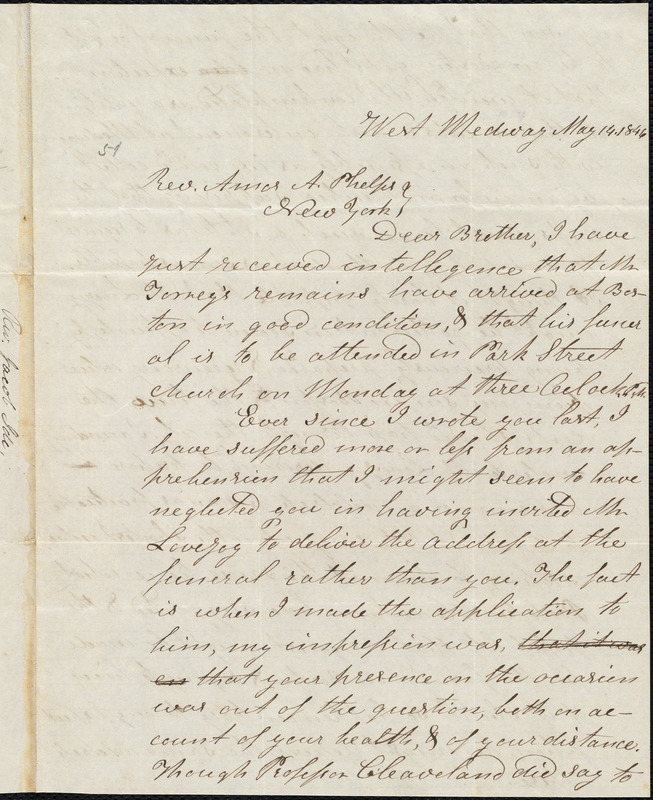 West Medway May 14. 1846
51
Rev. Amos A. Phelps
New York
Dear Brother, I have
just received intelligence that Mr
Torrey's remains have arrived at Bos-
ton in good condition, & that his funer
al is to be attended in Park Street
church on Monday at three O'clock P.M.
Ever since I wrote you last, I
have suffered more or less from an ap-
prehension that I might seem to have
neglected you in having invited Mr
Lovejoy to deliver the address at the
funeral rather than you. The fact
is when I made the application to
him, my impression was, that it was
en that your presence on the occasion
was out of the question, both on ac-
count of your health, & of your distance.
Though Professor Cleaveland did say to
Rev. Jacob Ide,